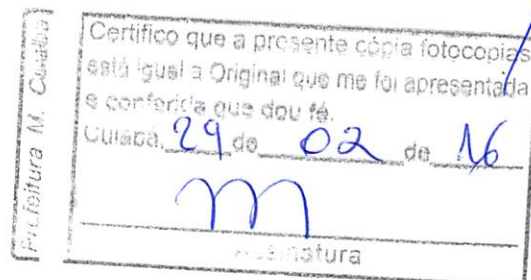 Prefeitura M. Cuiabá
Certifico que a presente cópia fotocopias
está igual a Original que me foi apresentada
e conferida que dou fé.
Cuiabá, 29 de 02 de 16
Assinatura